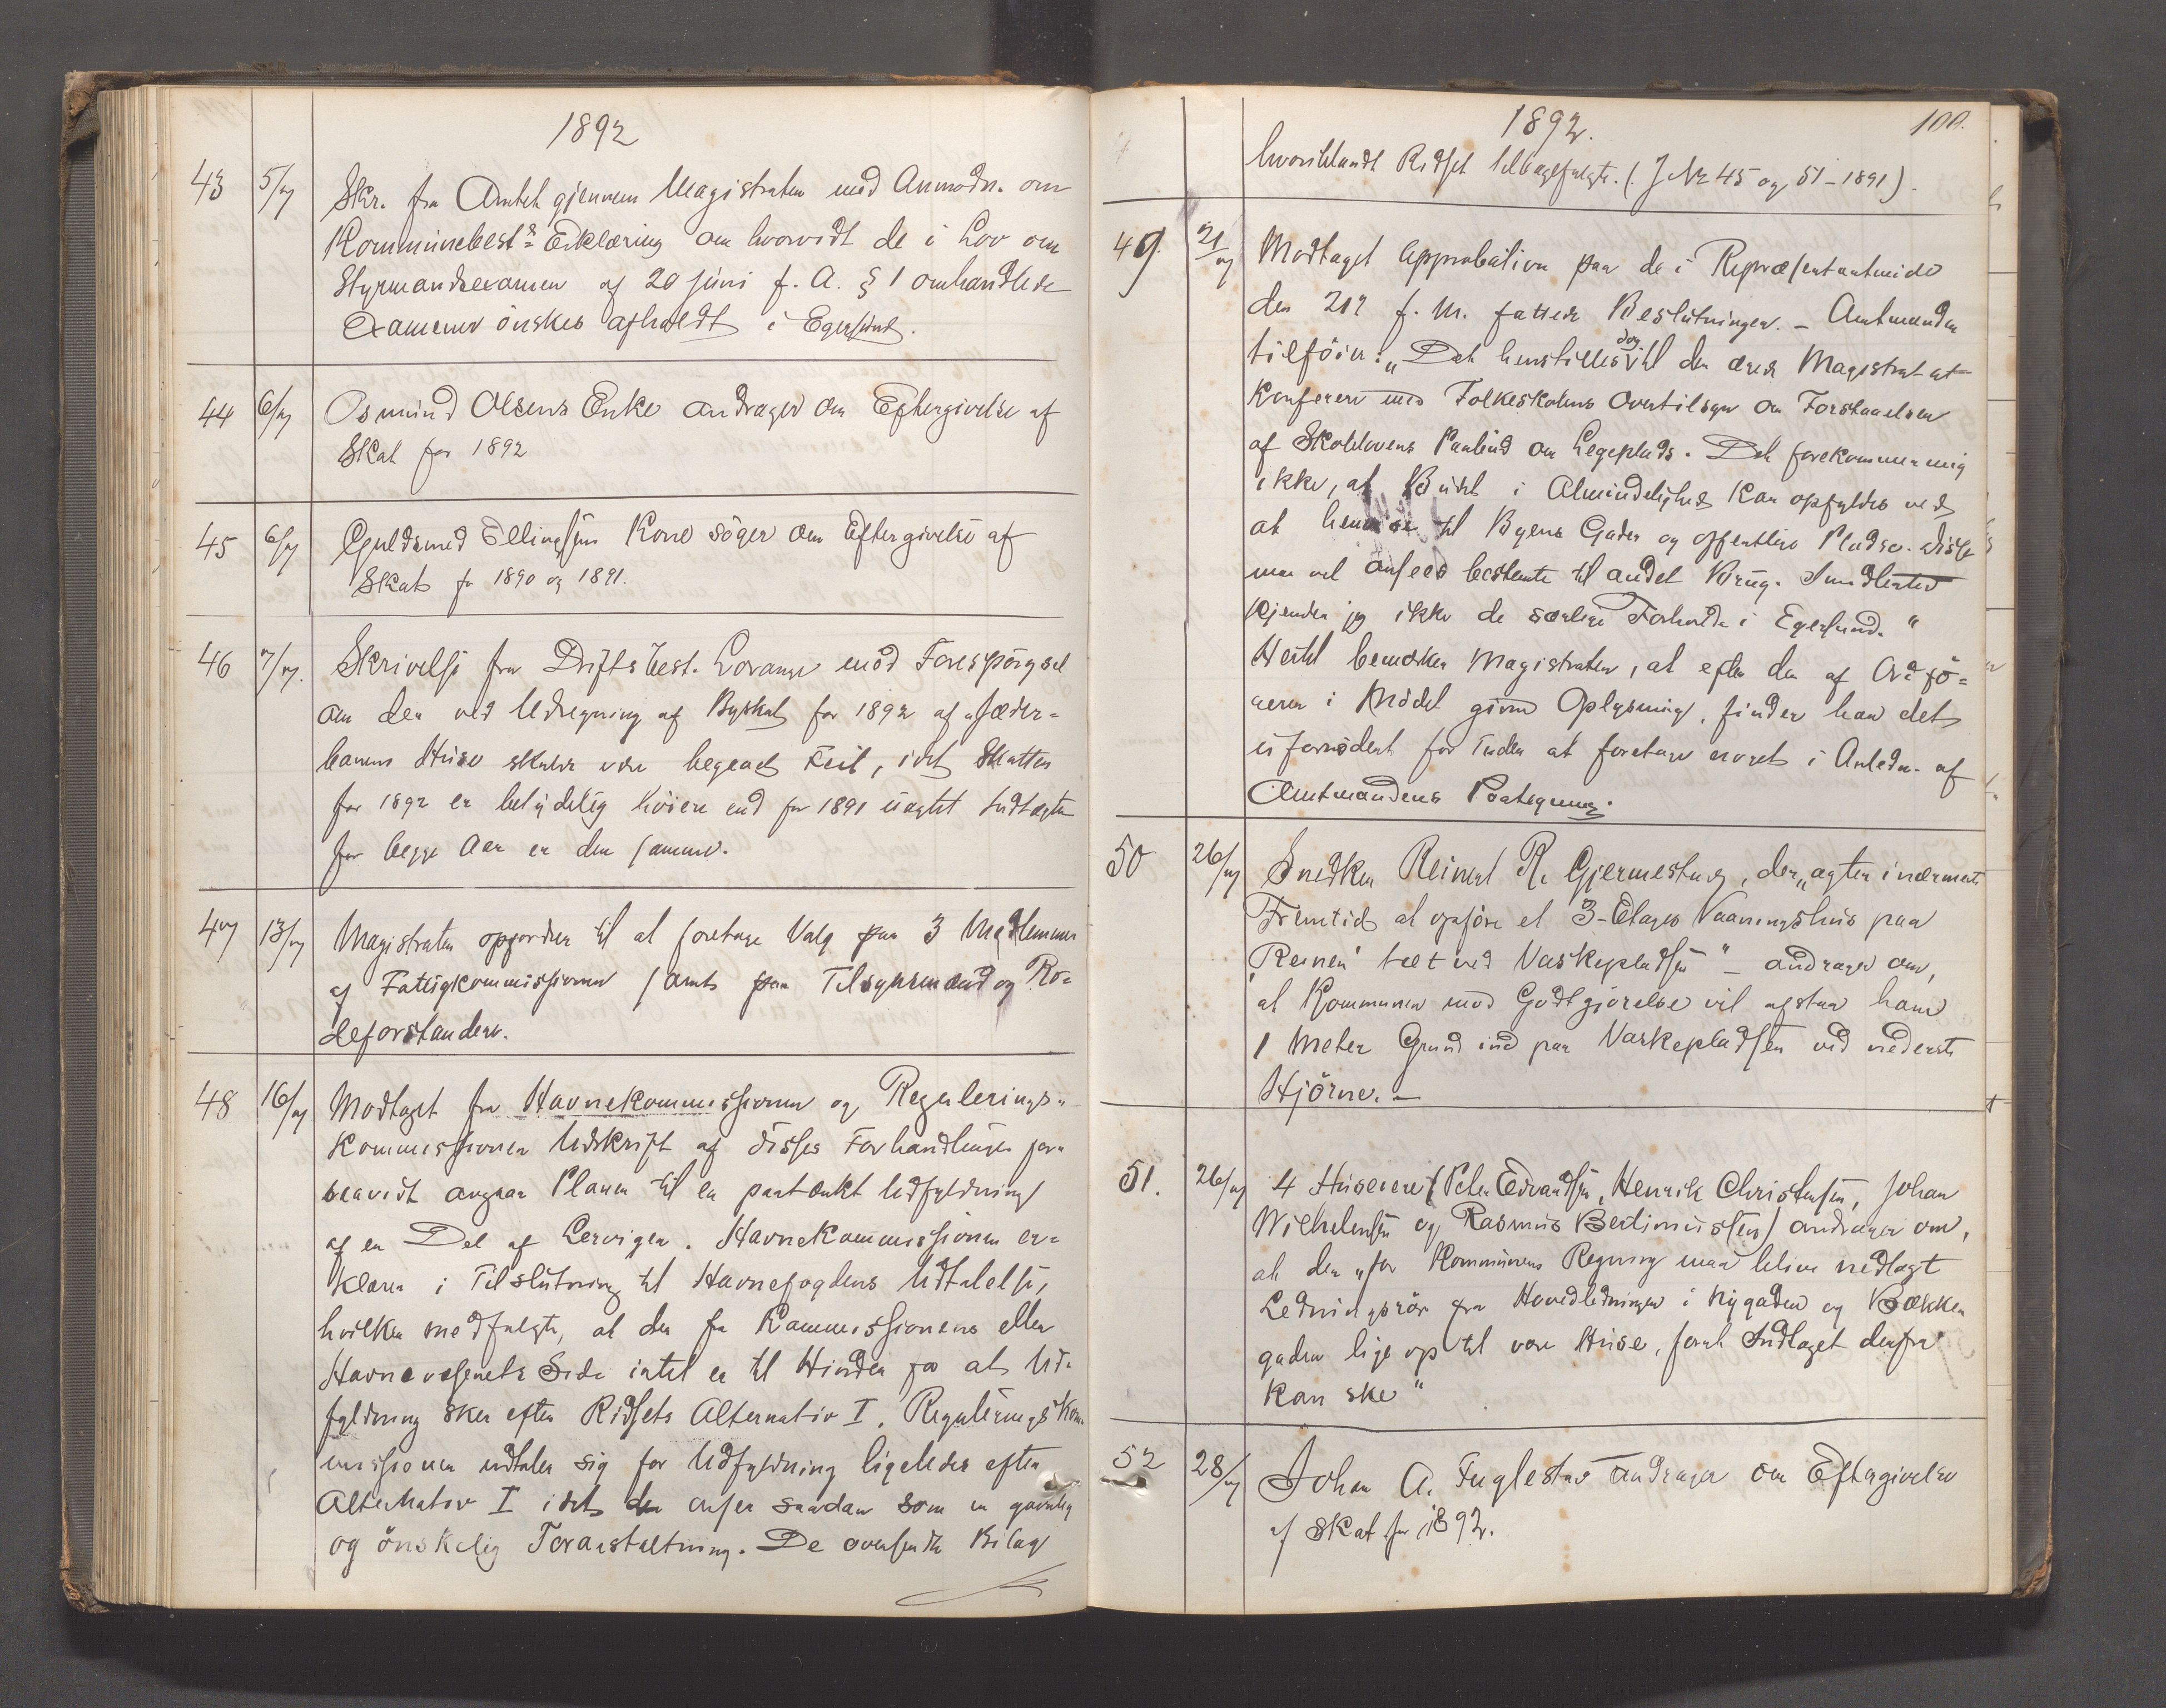 1892
43 5/7 Skr. fra Amtet gjennem Magistraten med Anmodn. om
Kommunebest.s Erklæring om hvorvidt de i Lov om
Styrmandsexamen af 20 juni f. A. § 1 omhandlede
Examener önskes afholdt i Egersund.
44 6/7 Osmund Olsens Enke andrager om Eftergivelse af
Skat for 1892
45 6/7 Guldsmed Ellingsens Kone söger om Eftergivelse af
Skat for 1890 og 1891.
46 7/7. Skrivelse fra Driftsbest. Lorange med Forespörgsel
om der ved Udregning af Byskat for 1892 af Jæder-
banens Huse skulde være begaaet Feil, idet Skatten
for 1892 er betydelig höiere end for 1891 uagtet Indtægten
for begge Aar er den samme.
47 13/7 Magistraten opfordrer til at foretage Valg paa 3 Medlemmer
af Fattigkommissionen samt paa Tilsynsmænd og Ro-
deforstandere.
48 16/7 Modtaget fra Havnekommissionen og Regulerings-
kommissionen Udskrift af disses Forhandlinger for-
saavidt angaar Planen til en paatænkt Udfyldning
af en Del af Lervigen. Havnekommissionen er-
klærer i Tilslutning til Havnefogdens Udtalelse,
hvilken medfulgte, at der fra Kommissionens eller
Havnevæsenets Side intet er til Hinder for at Ud-
fyldning sker efter Ridsets Alternativ I. Regulerings Kom-
missionen udtaler sig for Udfyldning ligeledes efter
Alternativ I idet den anser saadan som en gavnlig
og önskelig Foranstaltning. De oversendte Bilag
1892. 100.
hvoriblandt Ridset tilbagefulgte. (J No 45 og 51 - 1891).
49. 21/7 Modtaget Approbation paa de i Repræsentantmöde
den 21 f. M. fattede Beslutninger. - Amtmanden
tilföier: "Det henstilles dog til den ærede Magistrat at
konferere med Folkeskolens Overtilsyn om Forstaaelsen
af Skolelovens Paabud om Legeplads. Det forekommer mig
ikke, at Budet i Almindelighed kan opfyldes ved
at henvise til Byens Gader og offentlige Pladse. Disse
maa vel ansees bestemte til andet Brug. Imidlertid
kjender jeg ikke de særlige Forholde i Egersund."
Hertil bemærker Magistraten, at efter den af Ordfö-
reren i Mödet givne Oplysning, finder han det
ufornödent for Tiden at foretage noget i Anledn. af
Amtmandens Paategning.
50 26/7 Snedker Reinert R. Gjermestad, der "agter i nærmeste
Fremtid at opföre et 3-Etages Vaaningshus paa
'Reinen' tæt ved Vaskepladsen" - andrager om,
at Kommunen mod Godtgjörelse vil afstaa ham
1 Meter Grund ind paa Vaskepladsen ved nederste
Hjörne. -
51. 26/7 4 Huseiere (Peter Edvardsen, Henrik Christensen, Johan
Wilhelmsen og Rasmus Bertinussen) andrager om,
at der "for Kommunens Regning maa blive nedlagt
Ledningsrör fra Hovedledningen i Nygaden og Bækken
gaden lige op til vore Huse, forat Indtaget derfra
kan ske"
52 28/7 Johan A. Fuglestad andrager om Eftergivelse
af Skat for 1892.